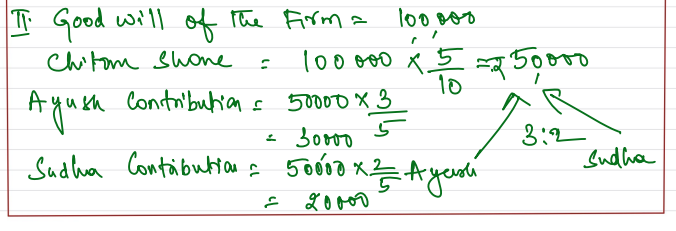 II. Good will of the Firm = 100000
Chitam Share = 100 000 × 5/10 = ₹ 50000
Ayush Contribution = 50000 × 3/5
= 30000
3:2
Sudha Contribution = 50000 × 2/5 Ayush Sudha
= 20000